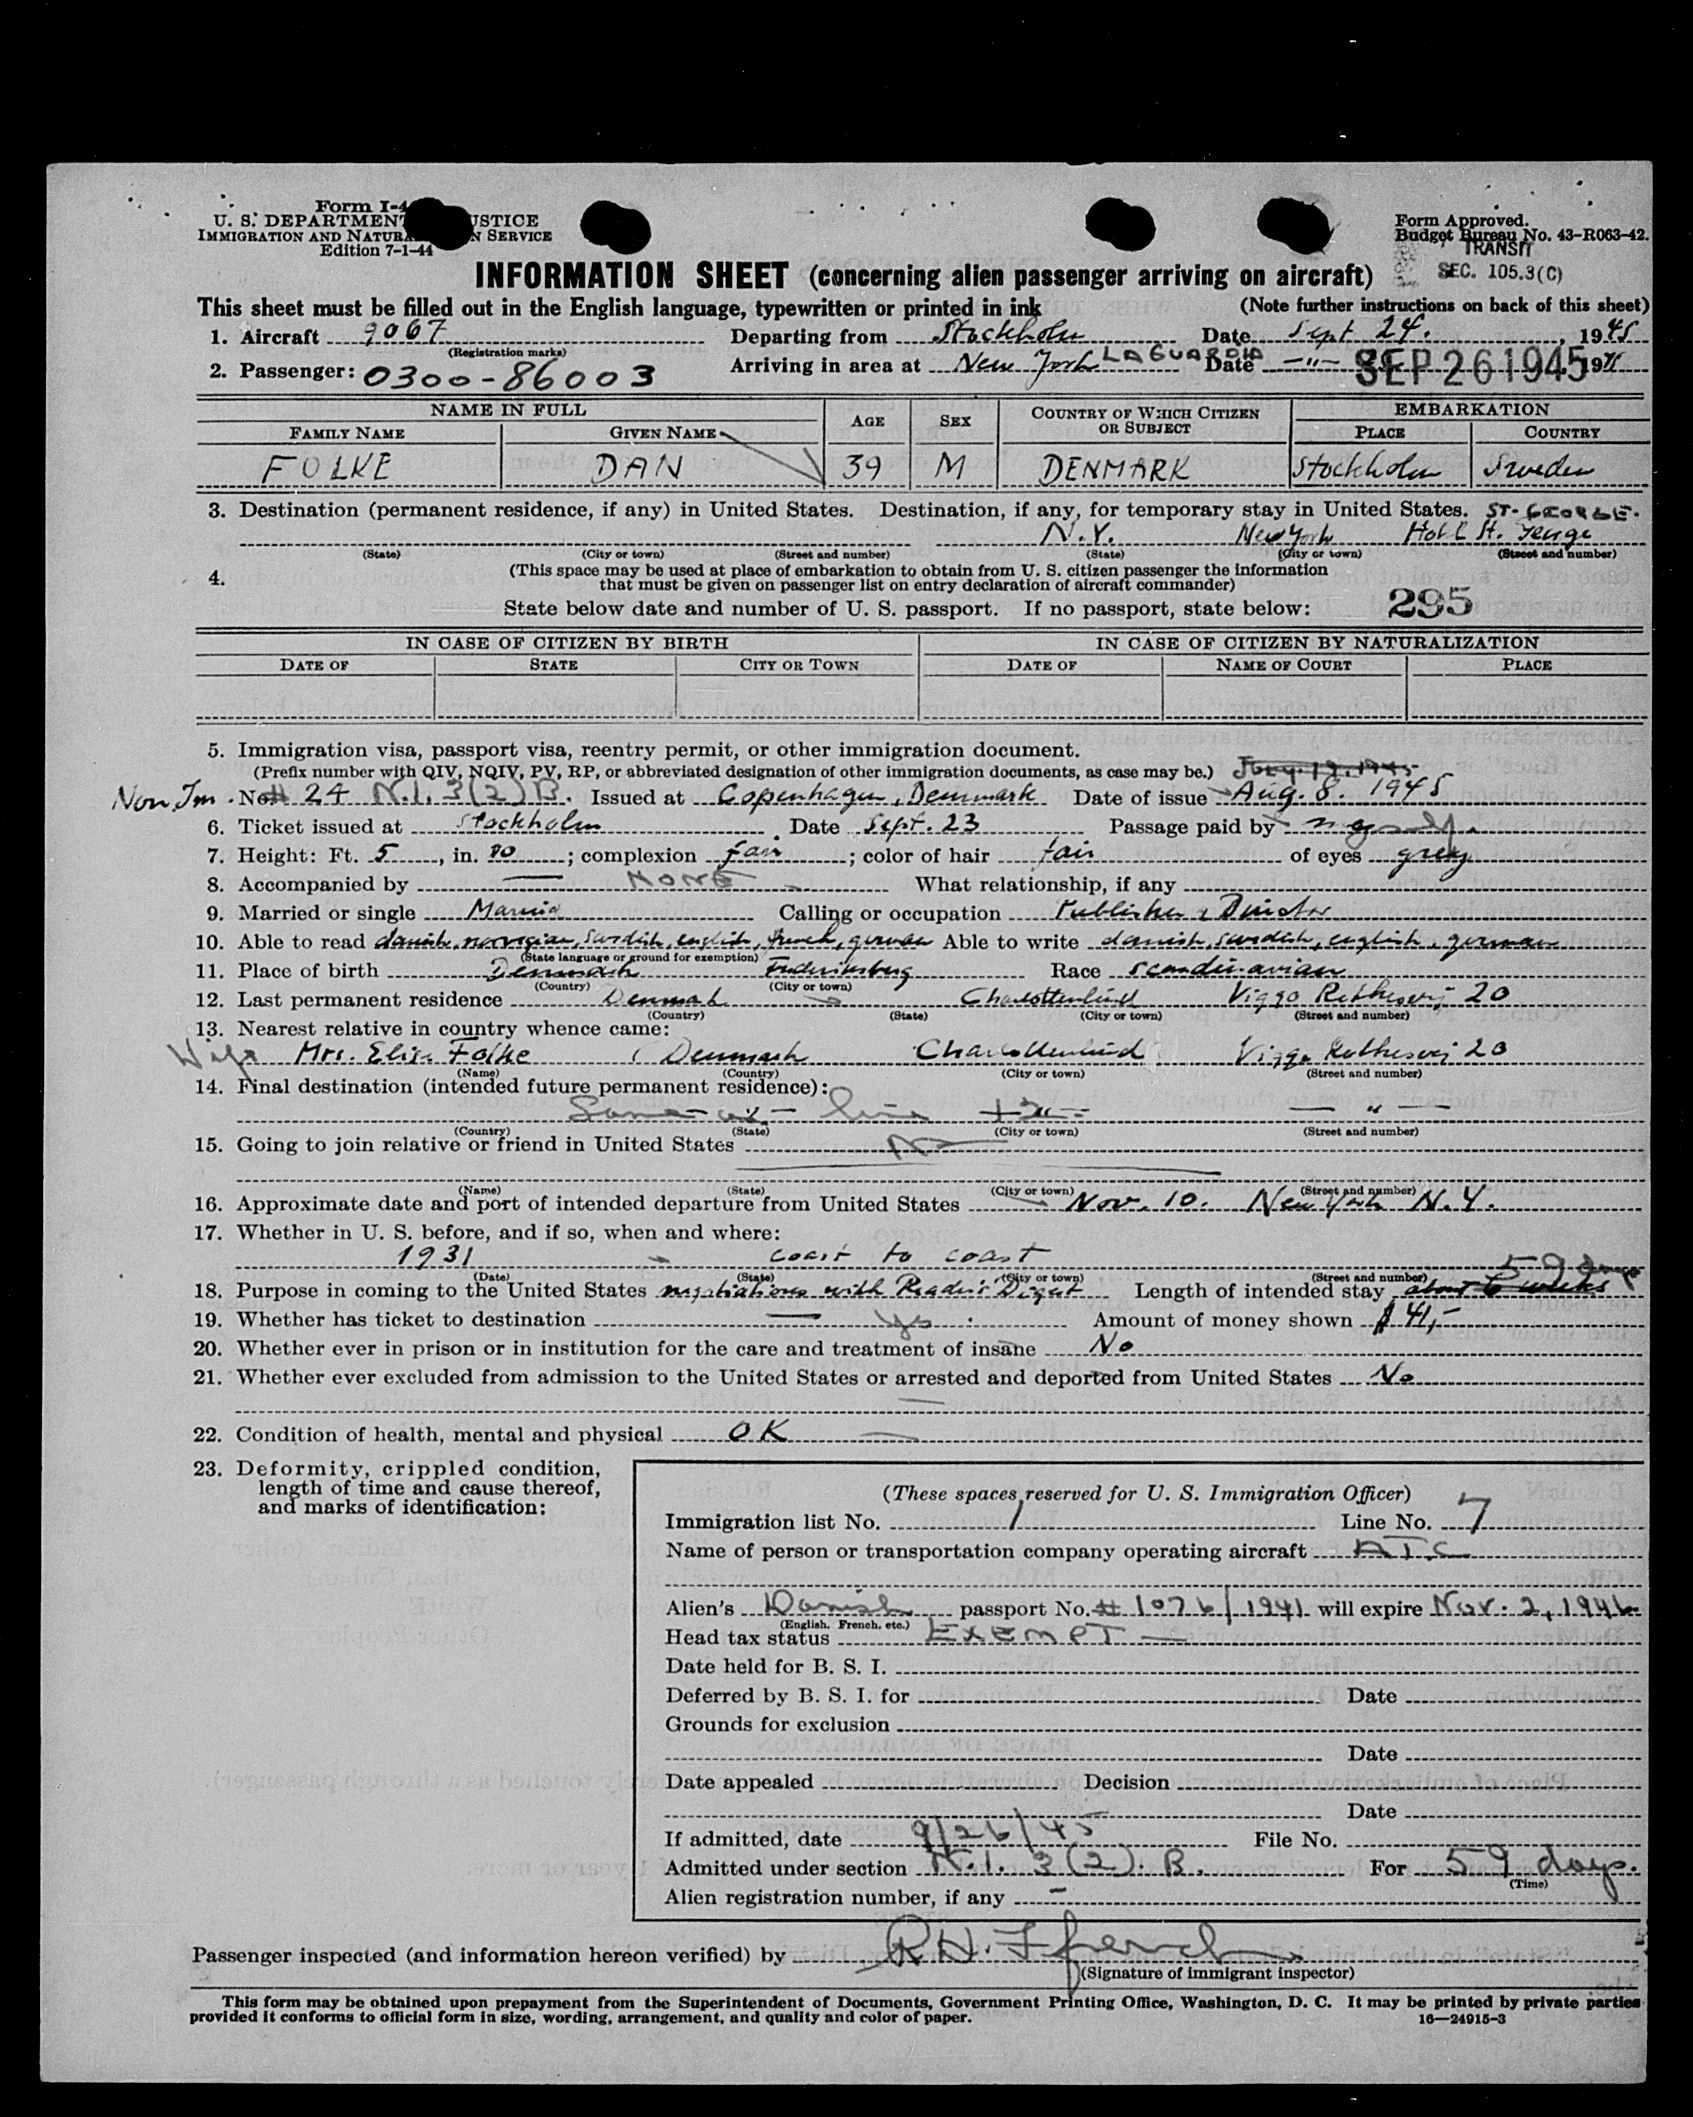 Form I-4
U. S. DEPARTMENT USTICE
IMMIGRATION AND NATURA N SERVICE
Edition 7-1-44
Form Approved.
Budget Bureau No. 43-R063-42.
TRANSIT
SEC. 105.3(C)
INFORMATION SHEET (concerning alien passenger arriving on aircraft)
This sheet must be filled out in the English language, typewritten or printed in ink (Note further instructions on back of this sheet)
1. Aircraft 9067 Departing from Stockholm Date Sept 24. , 1945
(Registration marks)
2. Passenger: 0300-86003 Arriving in area at New York LA GUARDIA Date —"— SEP 26 1945 , 19
NAME IN FULL AGE SEX COUNTRY OF WHICH CITIZEN OR SUBJECT EMBARKATION
FAMILY NAME GIVEN NAME PLACE COUNTRY
FOLKE DAN 39 M DENMARK Stockholm Sweden
3. Destination (permanent residence, if any) in United States. Destination, if any, for temporary stay in United States. ST. GEORGE.
N.Y. New York Hotel St. George
(State) (City or town) (Street and number) (State) (City or town) (Street and number)
4. (This space may be used at place of embarkation to obtain from U. S. citizen passenger the information
that must be given on passenger list on entry declaration of aircraft commander)
State below date and number of U. S. passport. If no passport, state below: 295
IN CASE OF CITIZEN BY BIRTH IN CASE OF CITIZEN BY NATURALIZATION
DATE OF STATE CITY OR TOWN DATE OF NAME OF COURT PLACE
5. Immigration visa, passport visa, reentry permit, or other immigration document.
(Prefix number with QIV, NQIV, PV, RP, or abbreviated designation of other immigration documents, as case may be.) July 19, 1945
Non Im. No. # 24 N.I. 3(2)B. Issued at Copenhagen, Denmark Date of issue Aug. 8. 1945
6. Ticket issued at Stockholm Date Sept. 23 Passage paid by myself.
7. Height: Ft. 5 , in. 10 ; complexion fair ; color of hair fair of eyes grey
8. Accompanied by — NONE What relationship, if any
9. Married or single Married Calling or occupation Publisher, Director
10. Able to read danish, norvegian, swedish, english, french, german Able to write danish, swedish, english, german
(State language or ground for exemption)
11. Place of birth Denmark Frederiksberg Race scandinavian
(Country) (City or town)
12. Last permanent residence Denmark Charlottenlund Viggo Rothesvej 20
(Country) (State) (City or town) (Street and number)
13. Nearest relative in country whence came:
Wife Mrs. Elise Folke Denmark Charlottenlund Viggo Rothesvej 20
(Name) (Country) (City or town) (Street and number)
14. Final destination (intended future permanent residence):
Same as line 12 — " —
(Country) (State) (City or town) (Street and number)
15. Going to join relative or friend in United States No
(Name) (State) (City or town) (Street and number)
16. Approximate date and port of intended departure from United States Nov. 10. New York N.Y.
17. Whether in U. S. before, and if so, when and where:
1931 coast to coast
(Date) (State) (City or town) (Street and number)
59 days
18. Purpose in coming to the United States negotiations with Reader's Digest Length of intended stay about 6 weeks
19. Whether has ticket to destination — yes. Amount of money shown $ 41,-
20. Whether ever in prison or in institution for the care and treatment of insane No
21. Whether ever excluded from admission to the United States or arrested and deported from United States No
22. Condition of health, mental and physical OK
23. Deformity, crippled condition,
length of time and cause thereof,
and marks of identification:
(These spaces reserved for U. S. Immigration Officer)
Immigration list No. 1 Line No. 7
Name of person or transportation company operating aircraft ATC
Alien's Danish passport No. # 1076/1941 will expire Nov. 2, 1946
(English, French, etc.)
Head tax status EXEMPT —
Date held for B. S. I.
Deferred by B. S. I. for Date
Grounds for exclusion
Date
Date appealed Decision
Date
If admitted, date 9/26/45 File No.
Admitted under section N.I. 3(2). B. For 59 days.
(Time)
Alien registration number, if any -
Passenger inspected (and information hereon verified) by R.H. Ffrench
(Signature of immigrant inspector)
This form may be obtained upon prepayment from the Superintendent of Documents, Government Printing Office, Washington, D. C. It may be printed by private parties
provided it conforms to official form in size, wording, arrangement, and quality and color of paper. 16—24915-3